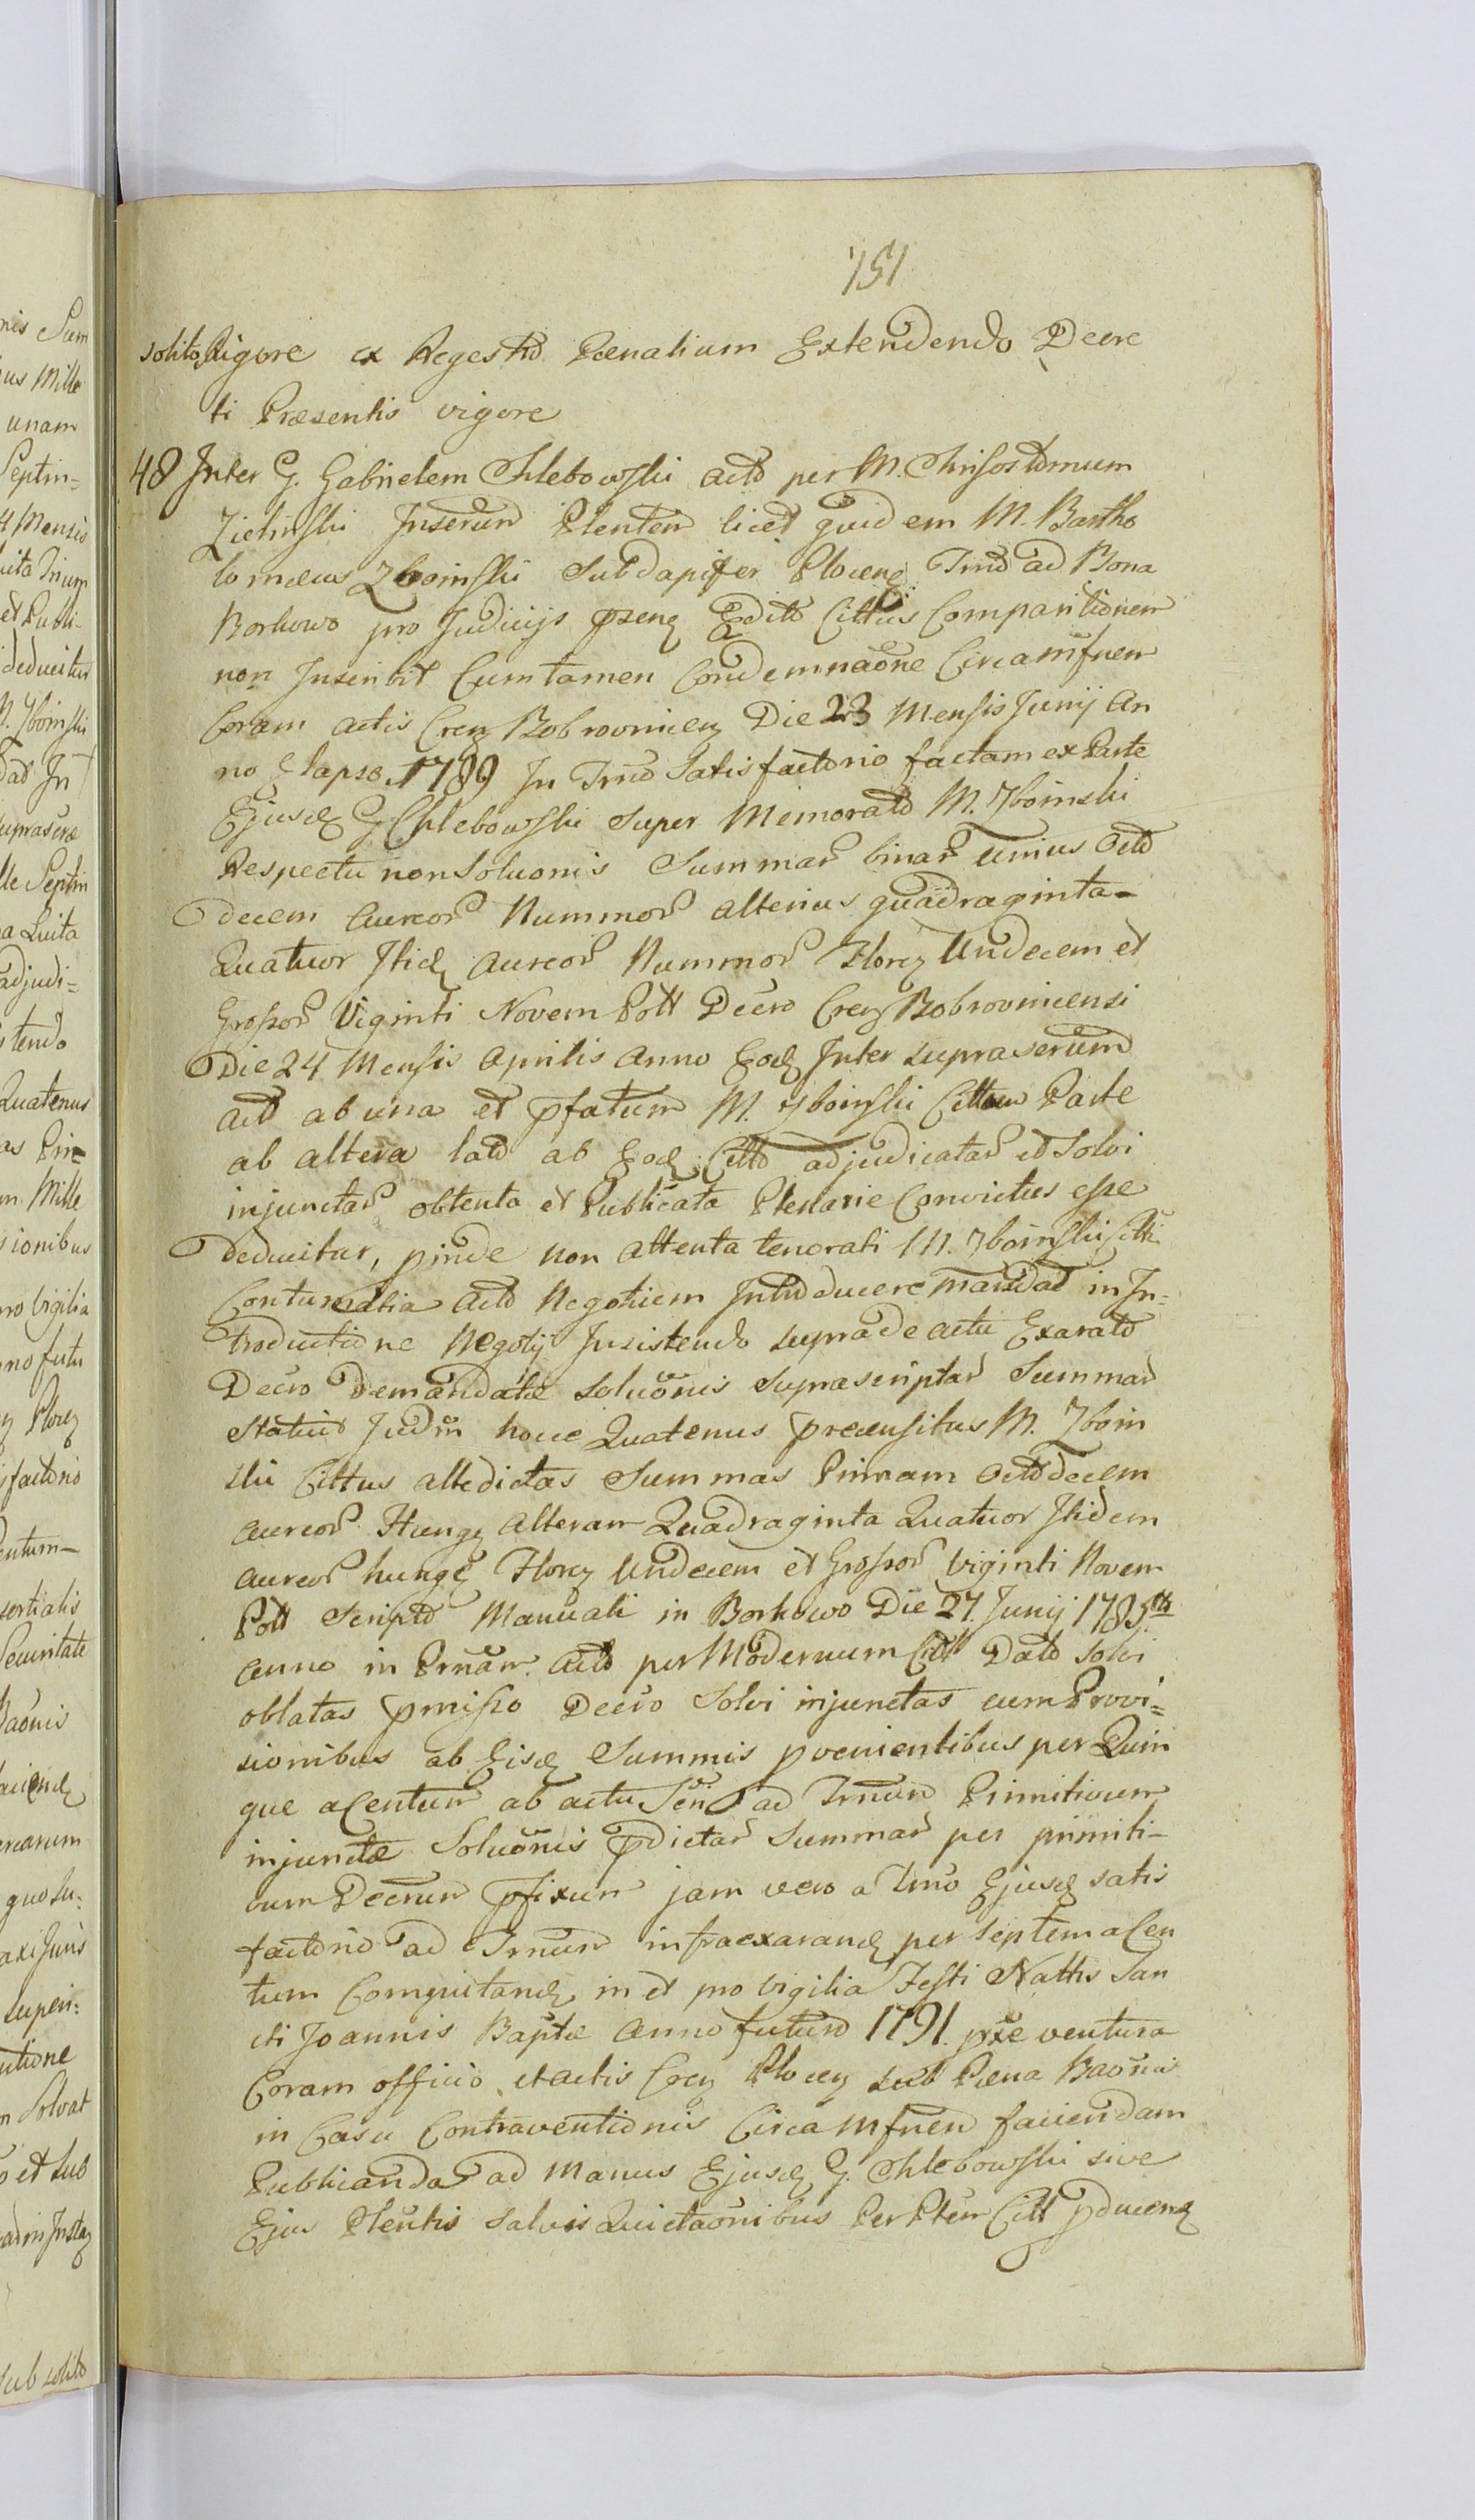 151
solito Rigore ex Regestro Poenalium Extendendo Decre
ti Præsentis vigore
48 Inter G. Gabrielem Chlebowski Act̃o per M. Chrisostomum
Zielinski Inserũn Plenten̄ licet quidem M. Bartho
lomæus Zboinski Subdapifer Plocen̄ Trnō ad Bona
Borkowo pro Judicijs pzen̄ Edito Cittus Comparitionem
non Inscribit Cum tamen Condemnaõne Circa mfnem
Coram actis Cren̄ Bobrownicen̄ Die 23 Mensis Junij An
no Elapso 1789 In Trnō Satisfactorio factam ex Parte
Ejusd̄ G Chlebowski Super Memorato M. Zboinski
Respectu non Soluonis Summar̄ binar̄ Unius Octo
decem Aureor̄ Nummor̄ Alterius quadraginta-
Quatuor Itid̄ Aureor̄ Nummor̄ Floren̄ Undecem et
Grossor̄ Viginti Novem Poll Decro Cren̄ Bobrownicensi
Die 24 Mensis Aprilis Anno Eod̄ Inter supraserũm
Act̃ ab una et pfatum M. Zboinski Cittum Parte
ab altera lato ab Eod̄ Citto adjudicatar̄ et Solvi
injunctar̄ obtenta et Publicata Plenarie Convictus esse
Deducitur, pinde non attenta tenorati M. Zboinski Citti
Contumatia Act̃o Negotium Introducere mandat in In=
troductione Negotij Insistendo supra de actu Exarato
Decro Demandatæ Soluõnis Suprascriptar̄ Summar̄
Statuit Judm̄ hocce Quatenus præcensitus M. Zboin
ski Cittus attedictas Summas Primam Octodecem
Aureor̄ Hunḡ Alteram Quadraginta Quatuor Itidem
Aureor̄ hunḡ Floren̄ Undecem et Grossor̄ Viginti Novem
Poll Scripto Manuali in Borkowo Die 27. Junij 1785to
Anno in Prnar̄. Act̃o per Modernum Citt Dato Solvi
oblatas pmisso Decro Solvi injunctas cum Provi=
sionibus ab Eisd̄ Summis pvenientibus per Quin
que a Centum ab actu ad Trnum Primitivum
injunctæ Soluõnis pdictar̄ Summar̄ per primiti-
vum Decrum pfixum jam vero a Trnō Ejusd̄ satis
factorio ad Trnum infraexarand̄ per Septem a Cen
tum Computand̄ in et pro Vigilia Festi Nattis San
cti Joannis Baptæ Anno futuro 1791. pxe ventura
Coram officio et actis Cren̄ Plocen̄ sub Pæna Baõnis
in Casu Contraventionis Circa Mfnen̄ faciendam
Publicanda ad Manus Ejusd̄ G. Chlebowski sive
Ejus Plentis salvis Quietaõnibus Per Pten̄ Citt pducend̄